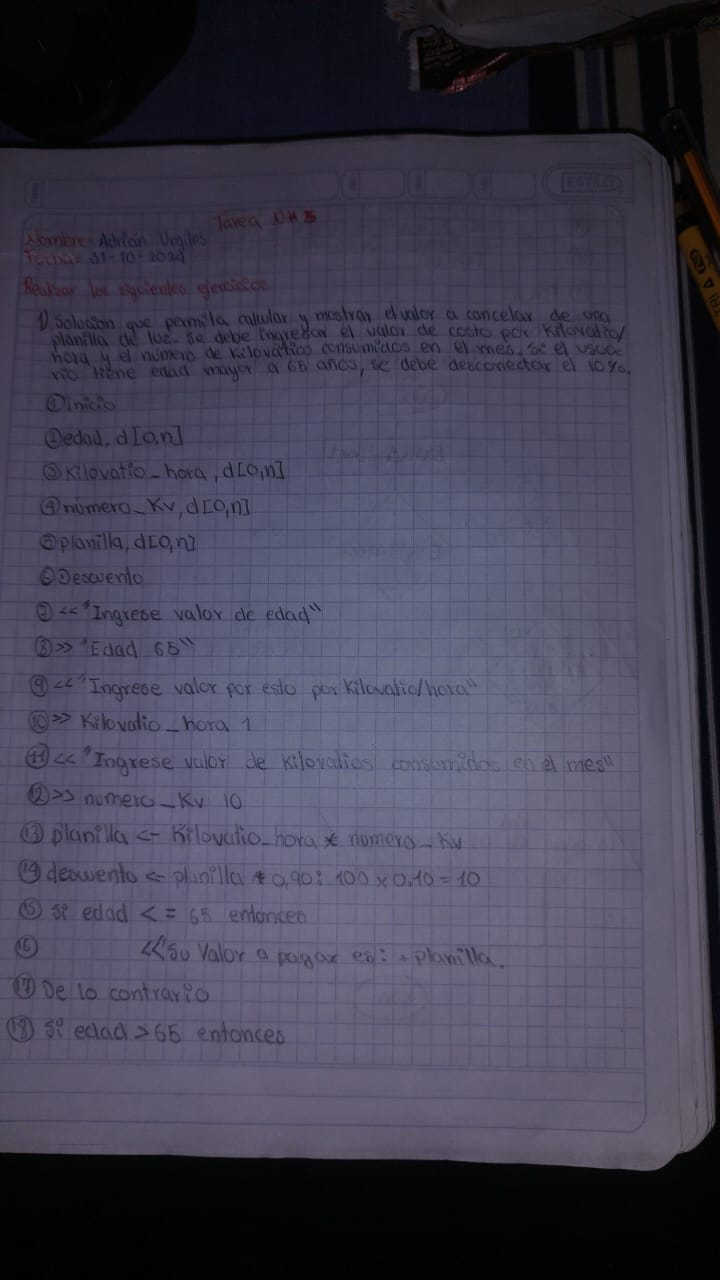 ESTILO
Tarea N# 5
Nombre= Adrian Urgiles
Fecha= 31-10-2024
Realizar los siguientes ejercicios
1) Solucion que permita calcular y mostrar el valor a cancelar de una
planilla de luz. se debe ingresar el valor de costo por Kilovatio/
hora y el número de Kilovatios consumidos en el mes, si el usua
rio tiene edad mayor a 65 años, se debe desconectar el 10%.
① inicio
② edad, d[0,n]
③ Kilovatio_hora, d[0,n]
④ número_Kv, d[0,n]
⑤ planilla, d[0,n]
⑥ Descuento
⑦ << "Ingrese valor de edad"
⑧ >> "Edad 65"
⑨ << "Ingrese valor por esto por Kilovatio/hora"
⑩ >> Kilovatio_hora 1
⑪ << "Ingrese valor de Kilovatios consumidos en el mes"
⑫ >> numero_Kv 10
⑬ planilla <- Kilovatio_hora * numero_Kv
⑭ descuento <- planilla * 0,90: 100 x 0,10 = 10
⑮ Si edad <= 65 entonces
⑯ <<"Su Valor a pagar es: + planilla.
⑰ De lo contrario
⑱ Si edad > 65 entonces